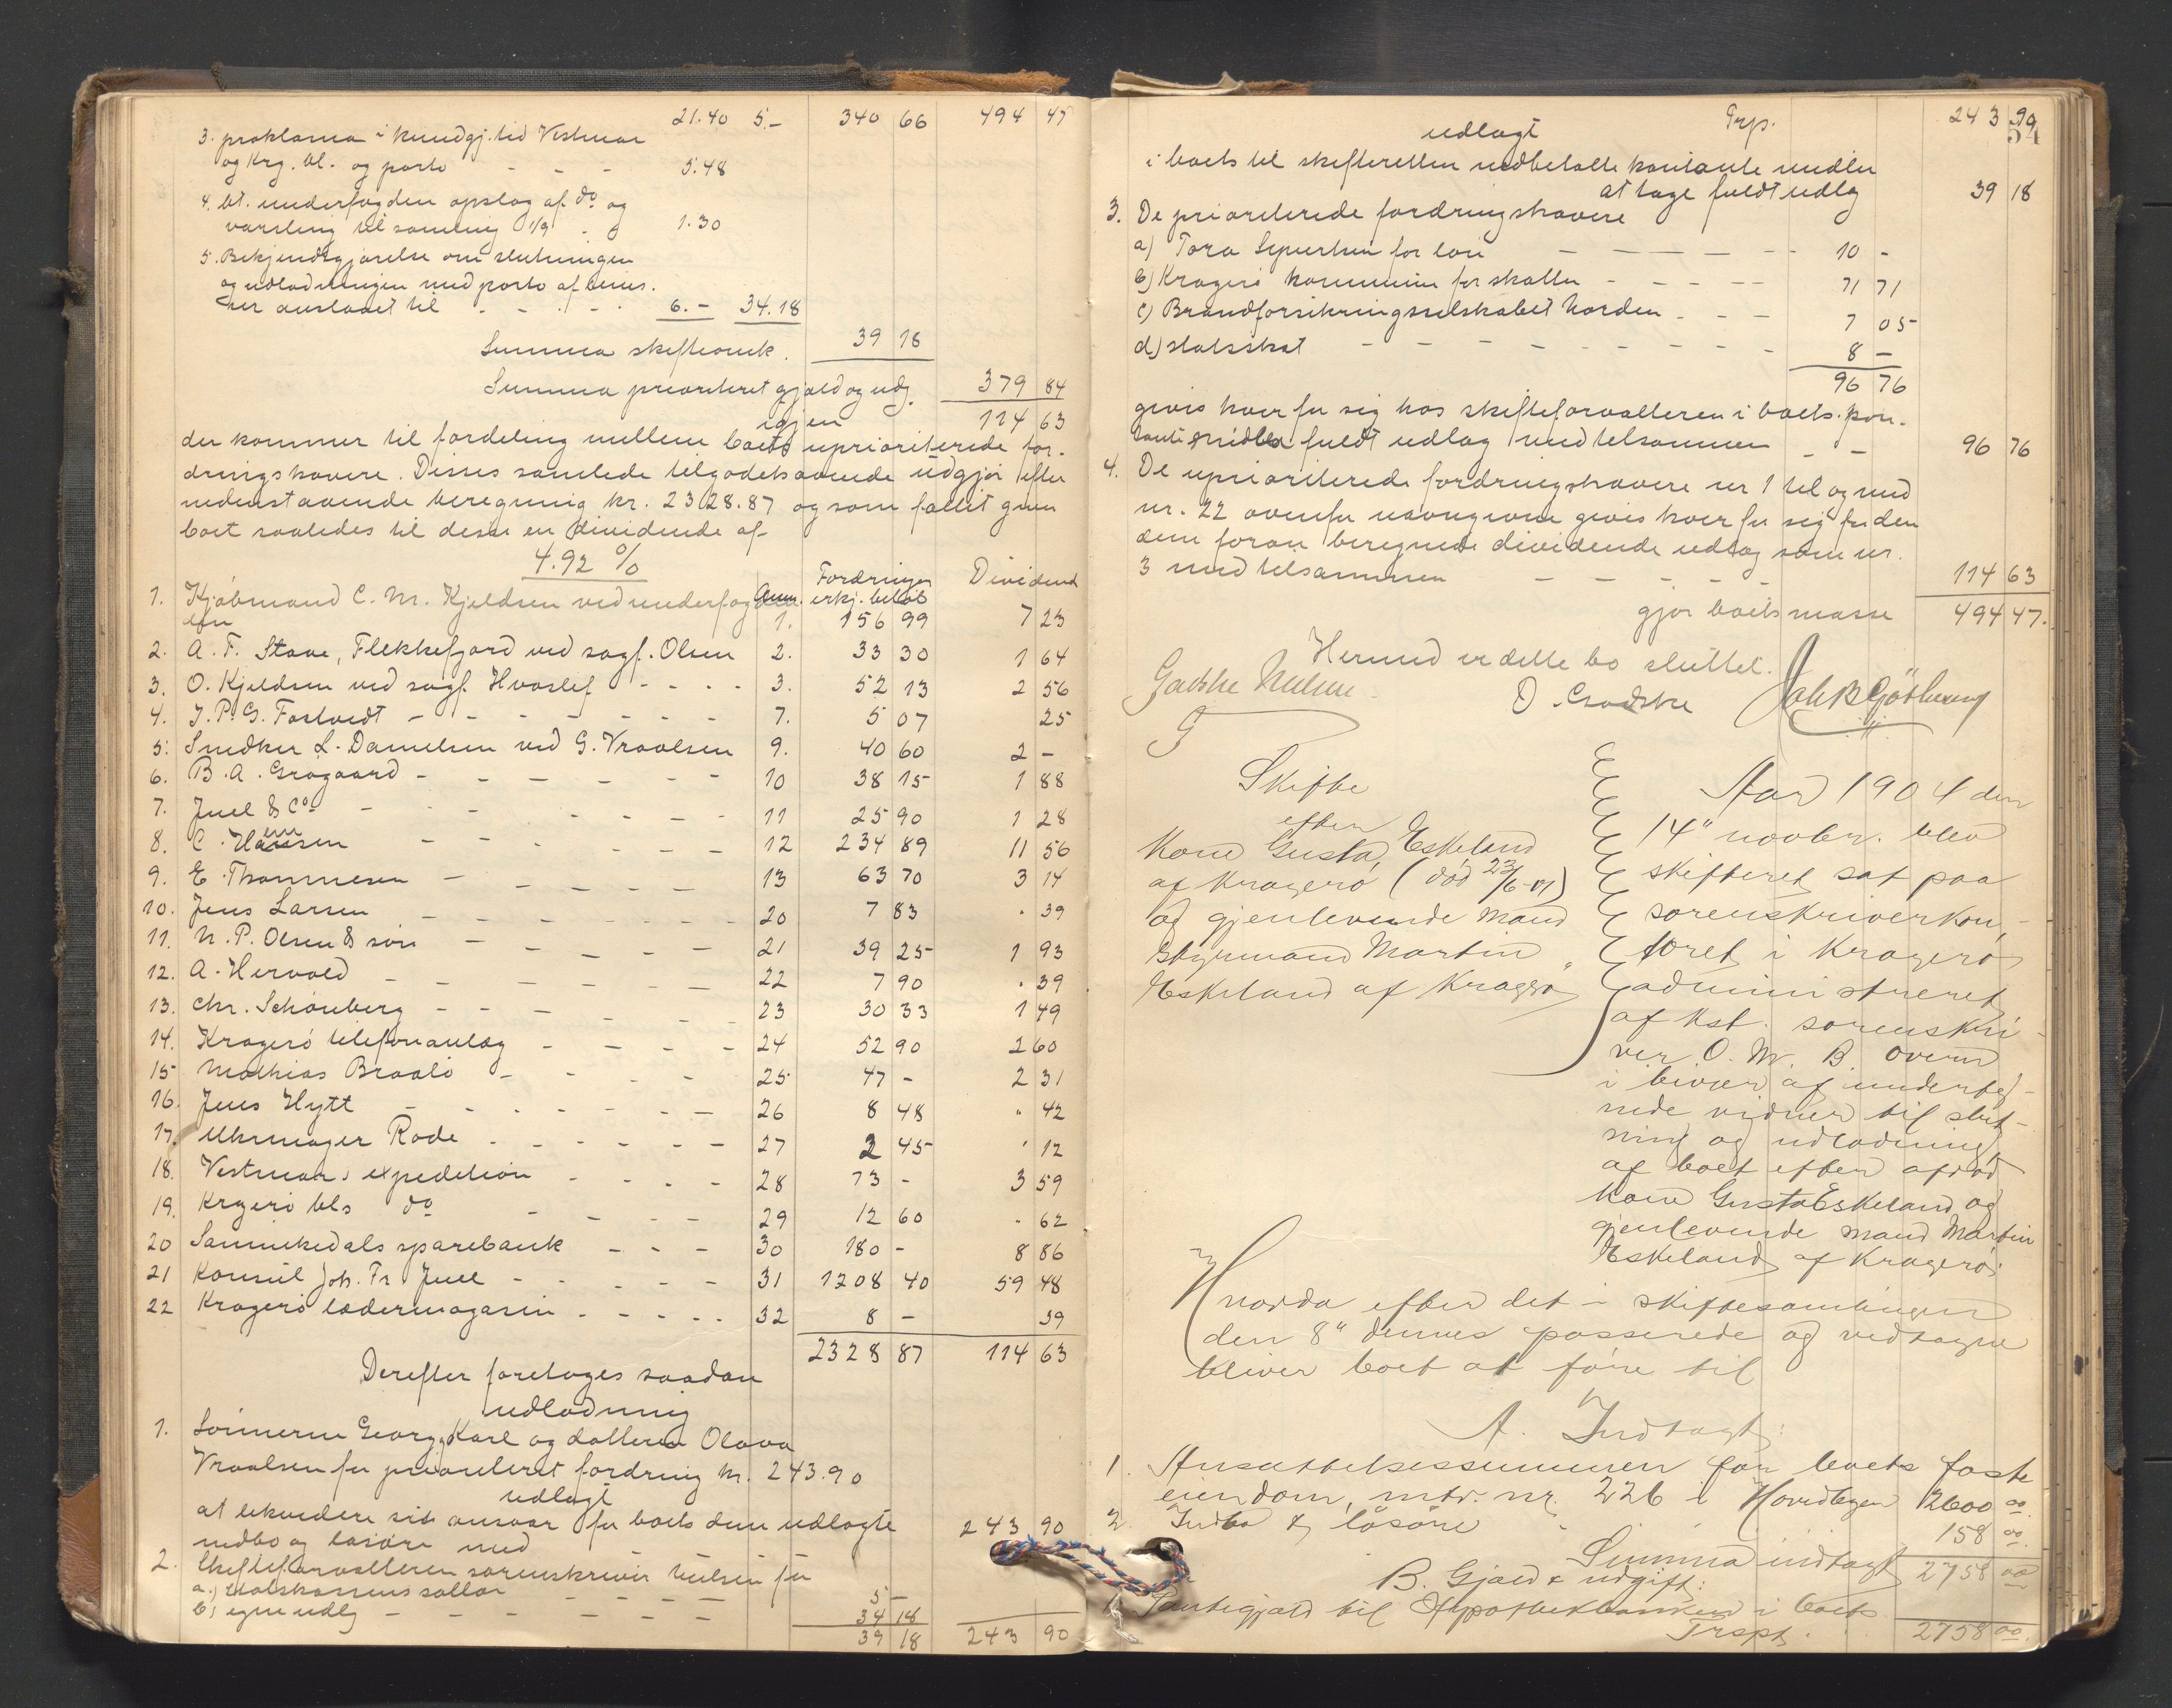 21.40 5.- 340 66 494 47
3. proklama i kundgj. tid Vestmar
og Krg. bl. og porto - - - 5.48
4. bt. underfogden opslag af do og
varsling til samling 1/9 - - 1.30
5. Bekjendtgjørelse om slutningen
og udlodningen med porto af
er anslaaet til - - - - 6.- 34.18
Summa skifteomk. 39 18
Summa prioriteret gjæld og udg. 379 84
igjen 114 63
der kommer til fordeling mellem boets uprioriterede for-
dringshavere. Disses samlede tilgodehavende udgjør efter
nedenstaaende beregning kr. 2328.87 og som fallit giver
boet saaledes til disse en dividende af
4.92 %
Fordringer Dividend
1. Kjøbmand C. M. Kjeldsen ved underfog Anm. erkj. beløb
den 1. 156 99 7 23
2. A. F. Stave, Flekkefjord ved sagf. Olsen 2. 33 30 1 64
3. O. Kjeldsen ved sagf. Hvoslef - - - - 3. 52 13 2 56
4. J. P. G. Fostvedt - - - - - - - 7. 5 07 25
5. Snedker L. Danielsen ved G. Vraalsen 9. 40 60 2 -
6. B. A. Grøgaard - - - - - - 10 38 15 1 88
7. Juel & Co - - - - - - - 11 25 90 1 28
8. C. Hansen - - - - - - 12 234 89 11 56
9. E. Thommesen - - - - - - 13 63 70 3 14
10. Jens Larsen - - - - - - - 20 7 83 . 39
11. N. P. Olsen & søn - - - - - 21 39 25 1 93
12. A. Hervold - - - - - - - 22 7 90 . 39
13. Chr. Schönberg - - - - - - 23 30 33 1 49
14. Kragerø telefonanlæg - - - - 24 52 90 2 60
15 Mathias Braalø - - - - 25 47 - 2 31
16. Jens Hytt - - - - - - - 26 8 48 " 42
17. Uhrmager Rode - - - - - - 27 2 45 ' 12
18. Vestmars expedition - - - - 28 73 - 3 59
19. Krgerø bls do - - - - 29 12 60 . 62
20 Sannikedals sparebank - - - 30 180 - 8 86
21 Konsul Joh. Fr. Juel - - - - - 31 1208 40 59 48
22 Kragerø lædermagasin - - - - - 32 8 - 39
2328 87 114 63
Derefter foretages saadan
udlodning
1. Sønnerne Georg, Karl og datteren Olava
Vraalsen for prioriteret fordring kr. 243.90
udlagt
at likvidere sit ansvar for boets dem udlagte
indbo og løsøre med 243 90
2. Skifteforvalteren sorenskriver Nielsen for
a.) Statskassens sallar 5 -
b.) egne udlg - - - - - - 34 18
39 18 243 90
Trp. 243 90
54
udlagt
i boets til skifteretten indbetalte kontante midler
at tage fuldt udlg 39 18
3. De prioriterede fordringshavere
a) Tora Sivertsen for løn - - - - - 10 -
b) Kragerø kommune for skatter - - - - 71 71
c) Brandforsikringsselskabet Norden - - - 7 05
d) statsskat - - - - - - - - 8 -
96 76
gives hver for sig hos skifteforvalteren i boets kon-
tante midler fuldt udlæg med tilsammen - - 96 76
4. De uprioriterede fordringshavere nr 1 til og med
nr. 22 ovenfor navngivne gives hver for sig for den
dem foran beregnede dividende udlæg som nr.
3 med tilsammen - - - - - 114 63
gjør boets masse 494 47.
Hermed er dette bo sluttet.
Gadske Nielsen
O. Gradske
Skifte
efter
Kone Gusta Eskeland
af Kragerø (død 23/6-01)
og gjenlevende mand
Styrmand Martin
Eskeland af Kragerø
Aar 1904 den
14" novbr. blev
skifteret sat paa
sorenskriverkon-
toret i Kragerø
administreret
af kst. sorenskri-
ver O. M. B. Overn
i bivær af underteg-
nede vidner til slut-
ning og udlodning
af boet efter afdøde
kone Gusta Eskeland og
gjenlevende mand Martin
Eskeland af Kragerø.
Hvorda efter det i skiftesamlingen
den 8" dennes passerede og vedtagne
bliver boet at føre til
A. Indtægt:
1. Ansættelsessummen for boets faste
eiendom, mtr. nr. 226 i Hovedbyen 2600 00.
2. Indbo & løsøre - 158 00.
Summa indtægt 2758 00
B. Gjæld & udgift:
1. Pantegjæld til Hypothekbanken i boets
Trspt. . . 2758 00.